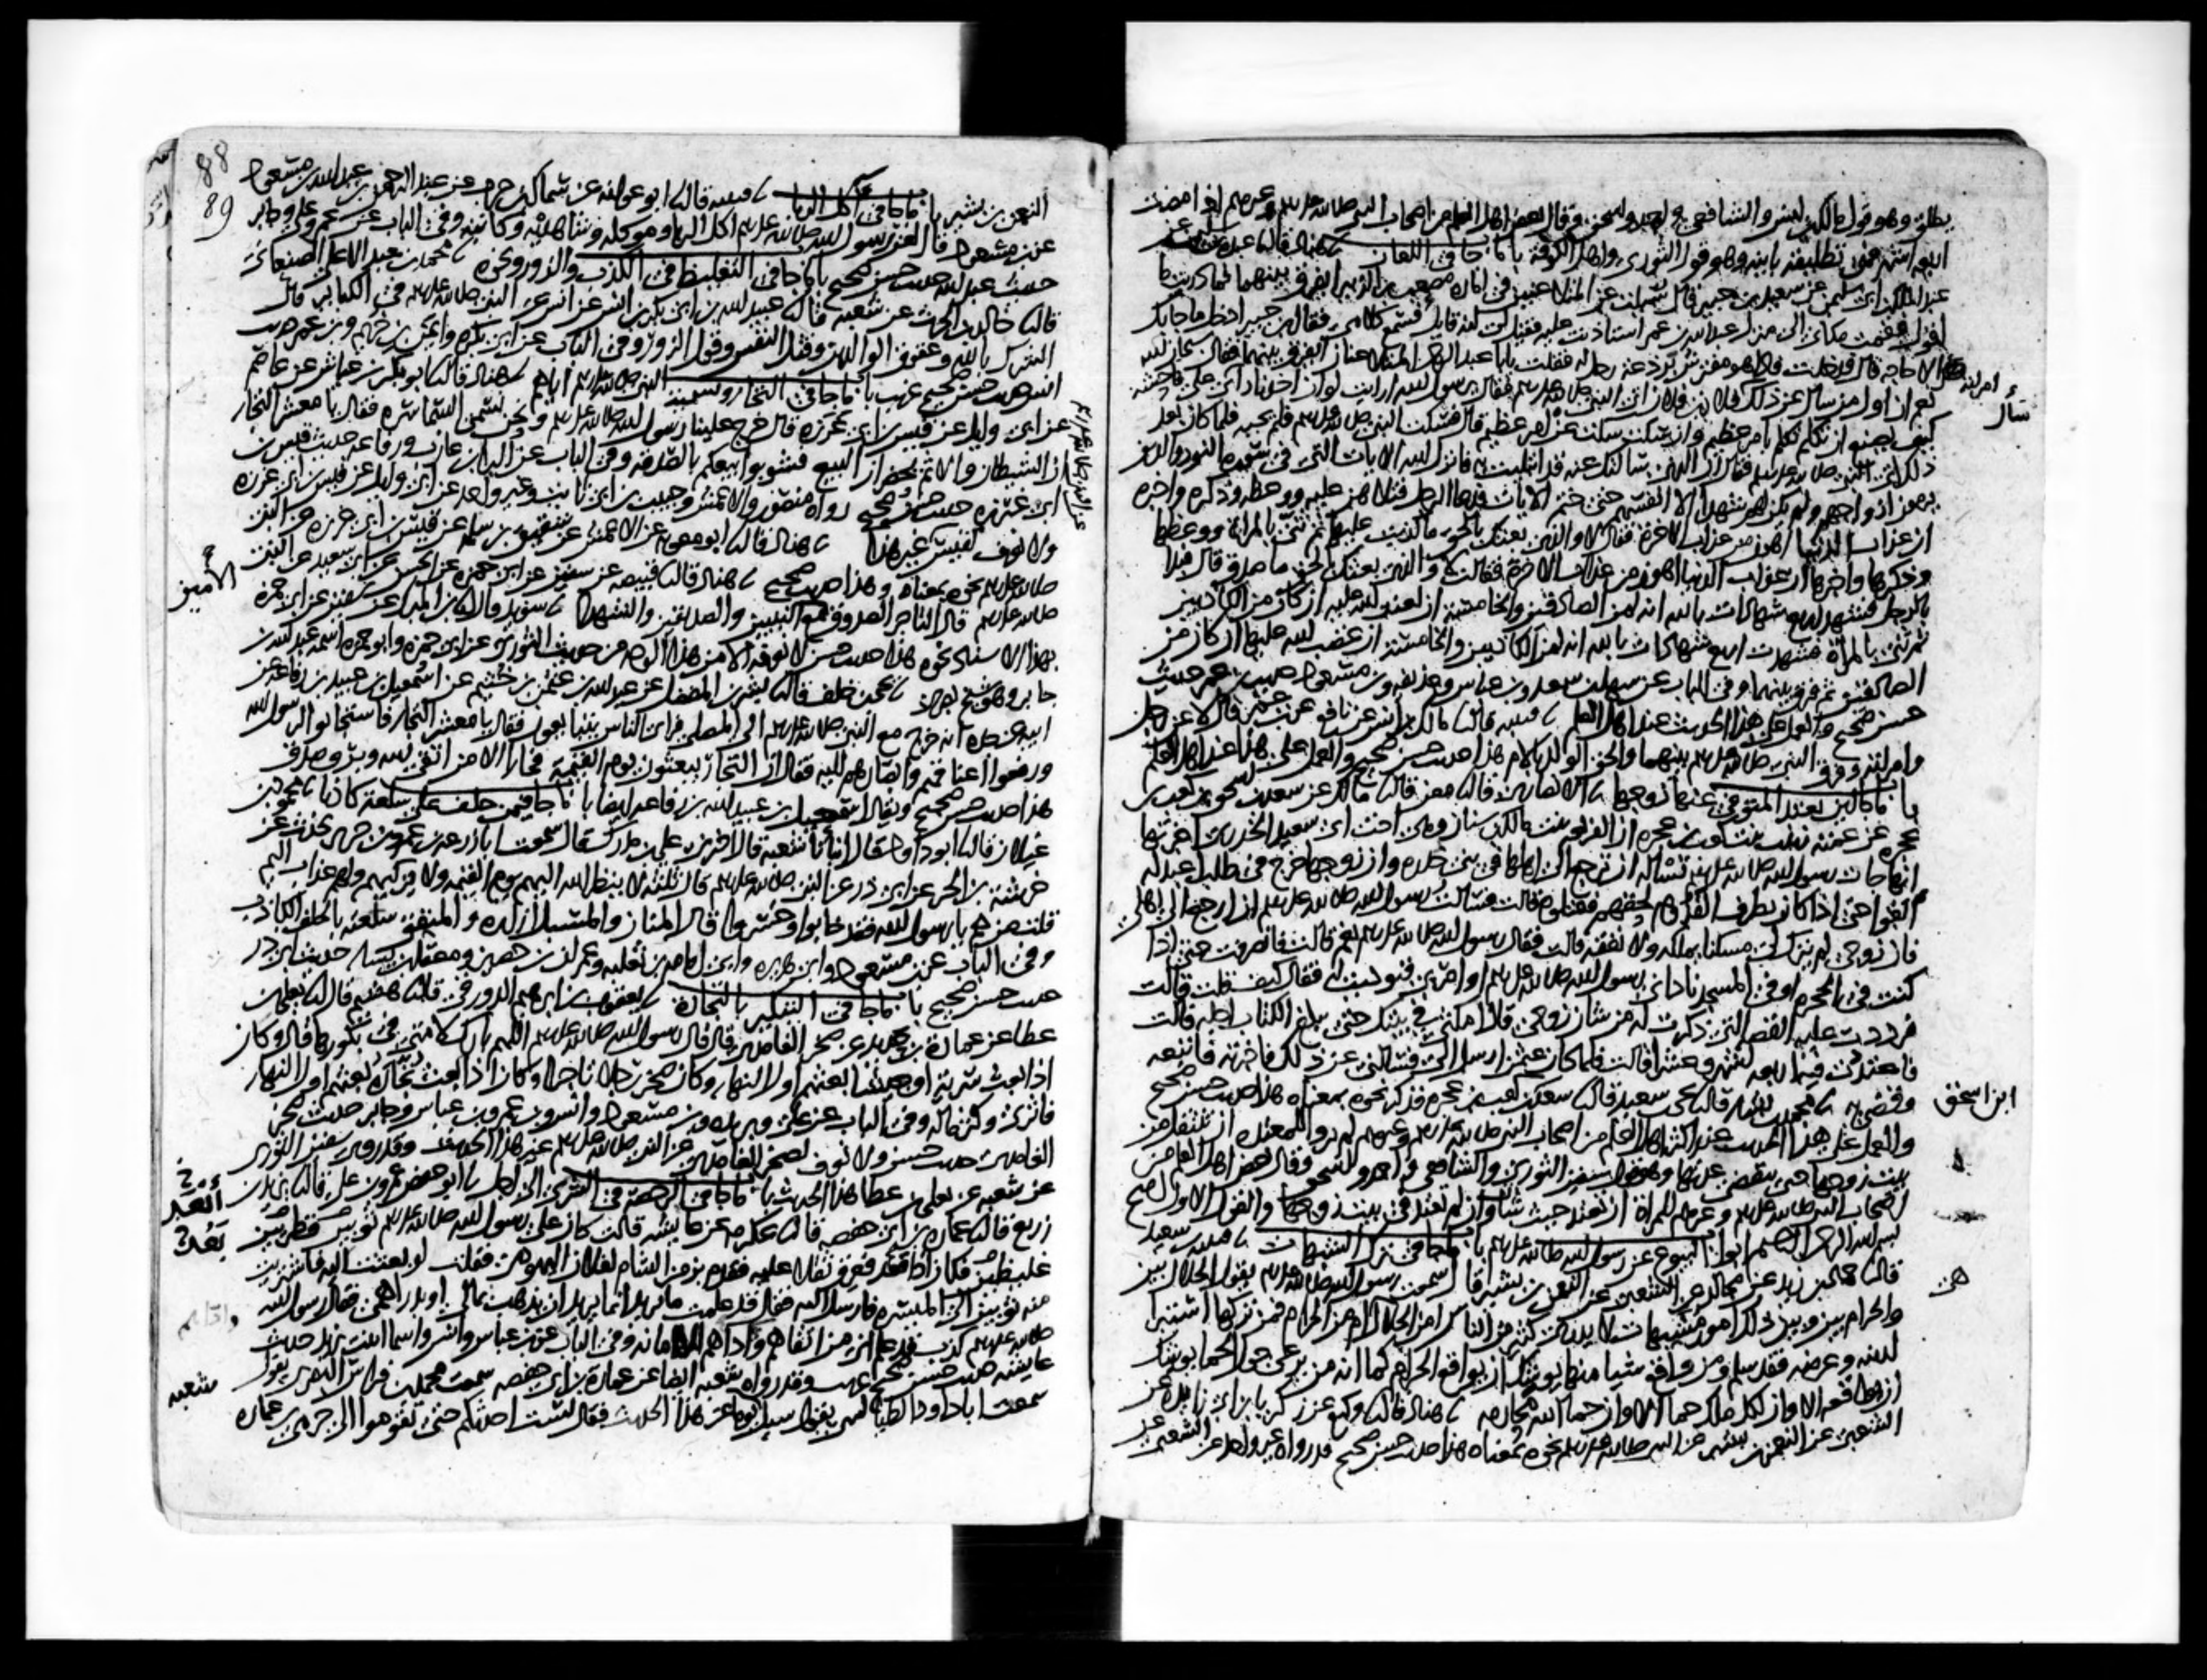 يطلق وهو قول مالك بن انس والشافعي واحمد واسحق وقال بعض اهل العلم من اصحاب النبي صلى الله عليه وسلم وغيرهم اذا مضت
اربعة اشهر فهي تطليقة باينة وهو قول الثوري واهل الكوفة باب ما جا في اللعان نا هناد قال نا عبدة بن سليمن عن
عبد الملك بن ابي سليمن عن سعيد بن جبير قال سئلت عن المتلاعنين في امارة مصعب بن الزبير ايفرق بينهما فما دريت ما
اقول فقمت مكاني الى منزل عبد الله بن عمر استاذنت عليه فقيل لي انه قايل فسمع كلامي فقال ابن جبير ادخل ما جا بك
الا حاجة قال فدخلت فاذا هو مفترش برذعة رحل له فقلت يا با عبد الرحمن المتلاعنان ايفرق بينهما فقال سبحان الله
نعم ان اول من سال عن ذلك فلان بن فلان اتى النبي صلى الله عليه وسلم فقال يا رسول الله ارايت لو ان احدنا راى امراته على فاحشة
كيف يصنع ان تكلم تكلم بامر عظيم وان سكت سكت عن امر عظيم قال فسكت النبي صلى الله عليه وسلم فلم يجبه فلما كان بعد
ذلك اتى النبي صلى الله عليه وسلم فقال ان الذي سالتك عنه قد ابتليت به فانزل الله الايات التي في سورة النور والذين
يرمون ازواجهم ولم يكن لهم شهدا الا انفسهم حتى ختم الايات فدعا الرجل فتلاهن عليه ووعظه وذكره واخبره
ان عذاب الدنيا اهون من عذاب الاخرة فقال لا والذي بعثك بالحق ما كذبت عليها ثم ثنى بالمراة ووعظها
وذكرها واخبرها ان عذاب الدنيا اهون من عذاب الاخرة فقالت لا والذي بعثك بالحق ما صدق قال فبدا
بالرجل فشهد اربع شهادات بالله انه لمن الصادقين والخامسة ان لعنة الله عليه ان كان من الكاذبين
ثم ثنى بالمراة فشهدت اربع شهادات بالله انه لمن الكاذبين والخامسة ان غضب الله عليها ان كان من
الصادقين ثم فرق بينهما وفي الباب عن سهل بن سعد وبن عباس وحذيفة وبن مسعود حديث بن عمر حديث
حسن صحيح والعمل على هذا الحديث عند اهل العلم نا قتيبة قال نا مالك بن انس عن نافع عن بن عمر قال لاعن رجل
وامراته وفرق النبي صلى الله عليه وسلم بينهما والحق الولد بالام هذا حديث حسن صحيح والعمل على هذا عند اهل العلم
باب ما جا اين تعتد المتوفى عنها زوجها نا الانصاري قال نا معن قال نا مالك عن سعد بن اسحق بن كعب بن
عجرة عن عمته زينب بنت كعب بن عجرة ان الفريعة بنت مالك بن سنان وهي اخت ابي سعيد الخدري اخبرتها
انها جات رسول الله صلى الله عليه وسلم تساله ان ترجع الى اهلها في بني خدرة وان زوجها خرج في طلب اعبد له
ابقوا حتى اذا كان بطرف القدوم لحقهم فقتلوه قالت فسالت رسول الله صلى الله عليه وسلم ان ارجع الى اهلي
فان زوجي لم يترك لي مسكنا يملكه ولا نفقة قالت فقال رسول الله صلى الله عليه وسلم نعم قالت فانصرفت حتى اذا
كنت في الحجرة او في المسجد ناداني رسول الله صلى الله عليه وسلم او امر بي فنوديت له فقال كيف قلت قالت
فرددت عليه القصة التي ذكرت له من شان زوجي قال امكثي في بيتك حتى يبلغ الكتاب اجله قالت
فاعتددت فيه اربعة اشهر وعشرا قالت فلما كان عثمن ارسل الي فسالني عن ذلك فاخبرته فاتبعه
وقضى به نا محمد بن بشار قال نا يحيى بن سعيد قال نا سعد بن كعب بن عجرة فذكر نحوه بمعناه هذا حديث حسن صحيح
والعمل على هذا الحديث عند اكثر اهل العلم من اصحاب النبي صلى الله عليه وسلم وغيرهم لم يروا للمعتدة ان تنتقل من
بيت زوجها حتى تنقضي عدتها وهو قول سفين الثوري والشافعي واحمد واسحق وقال بعض اهل العلم من
اصحاب النبي صلى الله عليه وسلم وغيرهم للمراة ان تعتد حيث شات وان لم تعتد في بيت زوجها والقول الاول اصح
بسم الله الرحمن الرحيم ابواب البيوع عن رسول الله صلى الله عليه وسلم باب ما جا في ترك الشبهات نا قتيبة بن سعيد
قال نا حماد بن زيد عن مجالد عن الشعبي عن النعمن بن بشير قال سمعت رسول الله صلى الله عليه وسلم يقول الحلال بين
والحرام بين وبين ذلك امور مشتبهات لا يدري كثير من الناس امن الحلال هي ام من الحرام فمن تركها استبرا
لدينه وعرضه فقد سلم ومن واقع شيا منها يوشك ان يواقع الحرام كما انه من يرعى حول الحما يوشك
ان يواقعه الا وان لكل ملك حما الا وان حما الله محارمه نا هناد قال نا وكيع عن زكريا بن ابي زايدة عن
الشعبي عن النعمن بن بشير عن النبي صلى الله عليه وسلم نحوه بمعناه هذا حديث حسن صحيح قد رواه غير واحد عن الشعبي عن
امراته
سال
ابن اسحق
هي
88
89
النعمن بن بشير باب ما جا في اكل الربا نا قتيبة قال نا ابو عوانة عن سماك بن حرب عن عبد الرحمن بن عبد الله بن مسعود
عن بن مسعود قال لعن رسول الله صلى الله عليه وسلم اكل الربا وموكله وشاهديه وكاتبه وفي الباب عن عمر وعلي وجابر
حديث عبد الله حديث حسن صحيح باب ما جا في التغليظ في الكذب والزور ونحوه نا محمد بن عبد الاعلى الصنعاني
قال نا خالد بن الحرث عن شعبة قال نا عبيد الله بن ابي بكر بن انس عن انس عن النبي صلى الله عليه وسلم في الكباير قال
الشرك بالله وعقوق الوالدين وقتل النفس وقول الزور وفي الباب عن ابي بكرة وايمن بن خريم وبن عمر حديث
انس حديث حسن صحيح غريب باب ما جا في التجار وتسمية النبي صلى الله عليه وسلم اياهم نا هناد قال نا ابو بكر بن عياش عن عاصم
عن ابي وايل عن قيس بن ابي غرزة قال خرج علينا رسول الله صلى الله عليه وسلم ونحن نسمى السماسرة فقال يا معشر التجار
ان الشيطان والاثم يحضران البيع فشوبوا بيعكم بالصدقة وفي الباب عن البرا بن عازب ورفاعة حديث قيس بن
ابي غرزة حديث حسن صحيح رواه منصور والاعمش وحبيب بن ابي ثابت وغير واحد عن ابي وايل عن قيس بن ابي غرزة
ولا نعرف لقيس غير هذا نا هناد قال نا ابو معوية عن الاعمش عن شقيق بن سلمة عن قيس بن ابي غرزة عن النبي
صلى الله عليه وسلم نحوه بمعناه وهذا حديث صحيح نا هناد قال نا قبيصة عن سفين عن ابي حمزة عن الحسن عن ابي سعيد عن النبي
صلى الله عليه وسلم قال التاجر الصدوق مع النبيين والصديقين والشهدا نا سويد قال نا بن المبارك عن سفين عن ابي حمزة
بهذا الاسناد نحوه هذا حديث حسن لا نعرفه الا من هذا الوجه من حديث الثوري عن ابي حمزة وابو حمزة اسمه عبد الله بن
جابر وهو شيخ بصري نا يحيى بن خلف قال نا بشر بن المفضل عن عبد الله بن عثمن بن خثيم عن اسمعيل بن عبيد بن رفاعة عن
ابيه عن جده انه خرج مع النبي صلى الله عليه وسلم الى المصلى فراى الناس يتبايعون فقال يا معشر التجار فاستجابوا لرسول الله
ورفعوا اعناقهم وابصارهم اليه فقال ان التجار يبعثون يوم القيمة فجارا الا من اتقى الله وبر وصدق
هذا حديث حسن صحيح ويقال اسمعيل بن عبيد الله بن رفاعة ايضا باب ما جا فيمن حلف على سلعة كاذبا نا محمود بن
غيلان قال نا ابو داود قال انبانا شعبة قال اخبرني علي بن مدرك قال سمعت ابا زرعة بن عمرو بن جرير يحدث عن
خرشة بن الحر عن ابي ذر عن النبي صلى الله عليه وسلم قال ثلثة لا ينظر الله اليهم يوم القيمة ولا يزكيهم ولهم عذاب اليم
قلت من هم يا رسول الله فقد خابوا وخسروا قال المنان والمسبل ازاره والمنفق سلعته بالحلف الكاذب
وفي الباب عن بن مسعود وابي هريرة وابي امامة بن ثعلبة وعمران بن حصين ومعقل بن يسار حديث ابي ذر
حديث حسن صحيح باب ما جا في التبكير بالتجارة نا يعقوب بن ابرهيم الدورقي قال نا هشيم قال نا يعلى بن
عطا عن عمارة بن حديد عن صخر الغامدي قال قال رسول الله صلى الله عليه وسلم اللهم بارك لامتي في بكورها قال وكان
اذا بعث سرية او جيشا بعثهم اول النهار وكان صخر رجلا تاجرا وكان اذا بعث تجارة بعثهم اول النهار
فاثرى وكثر ماله وفي الباب عن علي وبريدة وبن مسعود وانس وبن عمر وبن عباس وجابر حديث صخر
الغامدي حديث حسن ولا نعرف لصخر الغامدي عن النبي صلى الله عليه وسلم غير هذا الحديث وقد روى سفين الثوري
عن شعبة عن يعلى بن عطا هذا الحديث باب ما جا في الرخصة في الشرى الى اجل نا ابو حفص عمرو بن علي قال نا يزيد بن
زريع قال نا عمارة بن ابي حفصة قال نا عكرمة عن عايشة قالت كان على رسول الله صلى الله عليه وسلم ثوبين قطريين
غليظين فكان اذا قعد فعرق ثقلا عليه فقدم بز من الشام لفلان اليهودي فقلت لو بعثت اليه فاشتريت
منه ثوبين الى الميسرة فارسل اليه فقال قد علمت ما يريد انما يريد ان يذهب بمالي او بدراهمي فقال رسول الله
صلى الله عليه وسلم كذب قد علم اني من اتقاهم واداهم للامانة وفي الباب عن بن عباس وانس واسما ابنت يزيد حديث
عايشة حديث حسن صحيح غريب وقد رواه شعبة ايضا عن عمارة بن ابي حفصة سمعت محمد بن فراس البصري يقول
سمعت ابا داود الطيالسي يقول سيل يوما عن هذا الحديث فقال لست احدثكم حتى تقوموا الى حرمي بن عمارة
الامين
شعبة